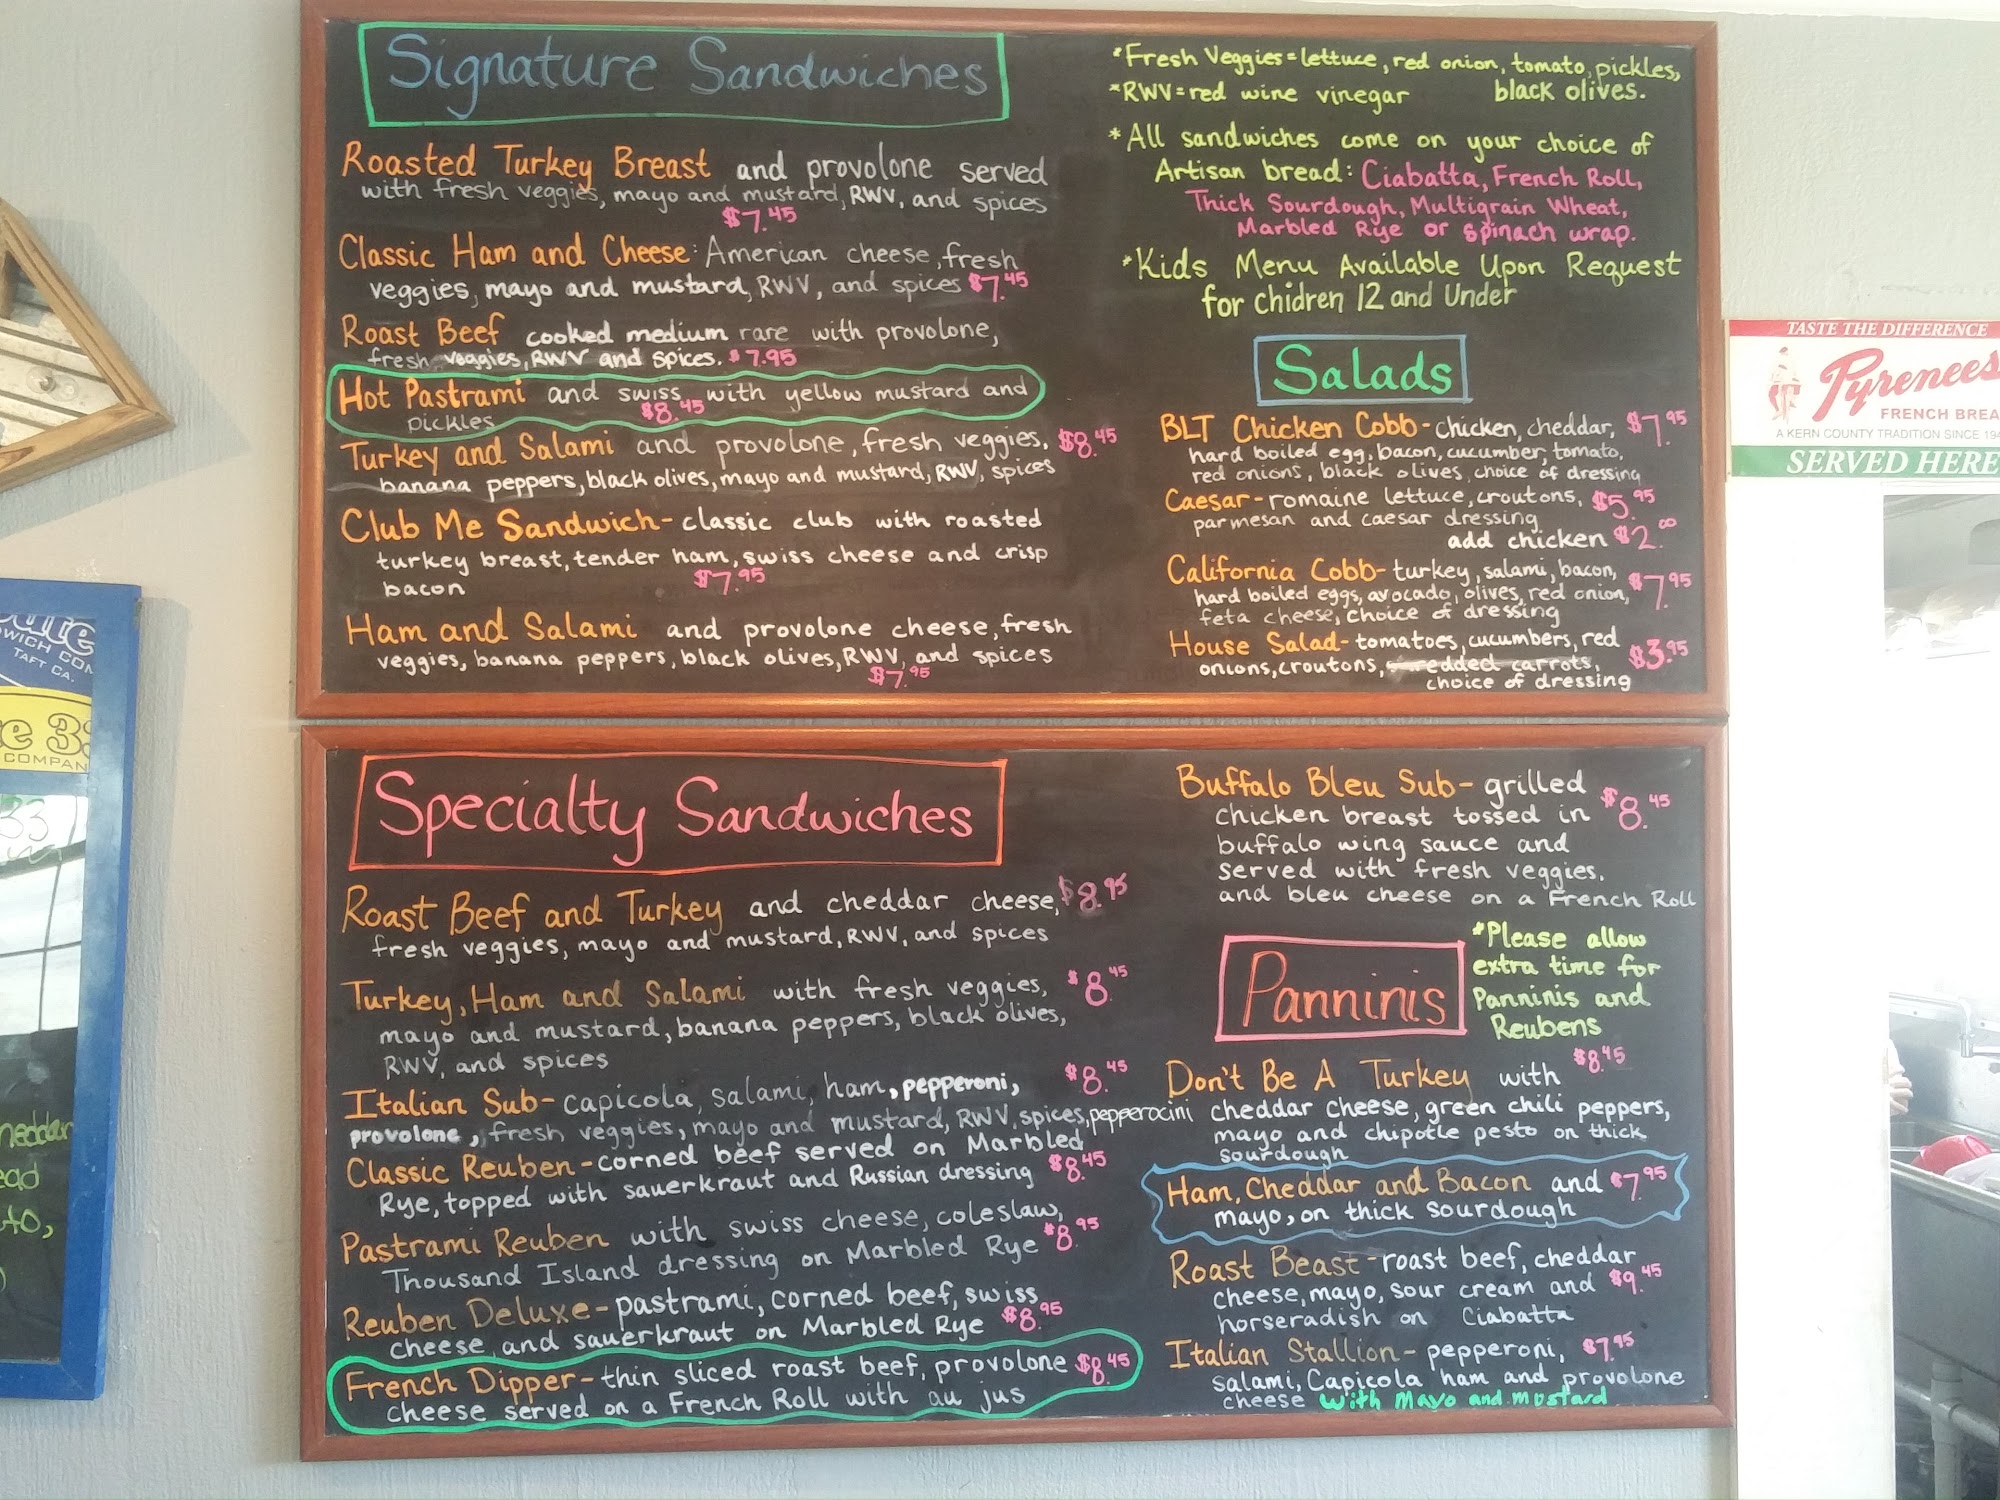 Signature Sandwiches
Roasted Turkey Breast and provolone served
with fresh veggies, mayo and mustard, RWV, and spices
$7.45
Classic Ham and Cheese: American cheese, fresh
veggies, mayo and mustard, RWV, and spices $7.45
Roast Beef cooked medium rare with provolone,
fresh veggies, RWV and spices. $7.95
Hot Pastrami and swiss with yellow mustard and
pickles $8.45
Turkey and Salami and provolone, fresh veggies, $8.45
banana peppers, black olives, mayo and mustard, RWV, spices
Club Me Sandwich - classic club with roasted
turkey breast, tender ham, swiss cheese and crisp
bacon $7.95
Ham and Salami and provolone cheese, fresh
veggies, banana peppers, black olives, RWV, and spices
$7.95
*Fresh Veggies = lettuce, red onion, tomato, pickles,
black olives.
*RWV = red wine vinegar
*All sandwiches come on your choice of
Artisan bread: Ciabatta, French Roll,
Thick Sourdough, Multigrain Wheat,
Marbled Rye or spinach wrap.
*Kids Menu Available Upon Request
for Chidren 12 and Under
Salads
BLT Chicken Cobb - chicken, cheddar, $7.95
hard boiled egg, bacon, cucumber, tomato,
red onions, black olives, choice of dressing
Caesar - romaine lettuce, croutons, $5.95
parmesan and caesar dressing
add chicken $2.00
California Cobb - turkey, salami, bacon, $7.95
hard boiled eggs, avocado, olives, red onion,
feta cheese, choice of dressing
House Salad - tomatoes, cucumbers, red $3.95
onions, croutons, redded carrots,
choice of dressing
Specialty Sandwiches
Roast Beef and Turkey and cheddar cheese, $8.95
fresh veggies, mayo and mustard, RWV, and spices
Turkey, Ham and Salami with fresh veggies, $8.45
mayo and mustard, banana peppers, black olives,
RWV, and spices
Italian Sub - capicola, salami, ham, pepperoni, $8.45
provolone, fresh veggies, mayo and mustard, RWV, spices, pepperocini
Classic Reuben - corned beef served on Marbled
Rye, topped with sauerkraut and Russian dressing $8.45
Pastrami Reuben with swiss cheese, coleslaw,
Thousand Island dressing on Marbled Rye $8.95
Reuben Deluxe - pastrami, corned beef, swiss
cheese, and sauerkraut on Marbled Rye $8.95
French Dipper - thin sliced roast beef, provolone $8.45
cheese served on a French Roll with au jus
Buffalo Bleu Sub - grilled $8.45
chicken breast tossed in
buffalo wing sauce and
served with fresh veggies,
and bleu cheese on a French Roll
Panninis
*Please allow
extra time for
Panninis and
Reubens
Don't Be A Turkey with $8.45
cheddar cheese, green chili peppers,
mayo and chipotle pesto on thick
sourdough
Ham, Cheddar and Bacon and $7.95
mayo, on thick sourdough
Roast Beast - roast beef, cheddar
cheese, mayo, sour cream and $9.45
horseradish on Ciabatta
Italian Stallion - pepperoni, $7.95
salami, Capicola ham and provolone
cheese with Mayo and mustard
TASTE THE DIFFERENCE
Pyrenees
FRENCH BREA
A KERN COUNTY TRADITION SINCE 194
SERVED HERE
ute
DWICH COM
TAFT CA.
e 33
COMPAN
33
heddar
ead
ato,